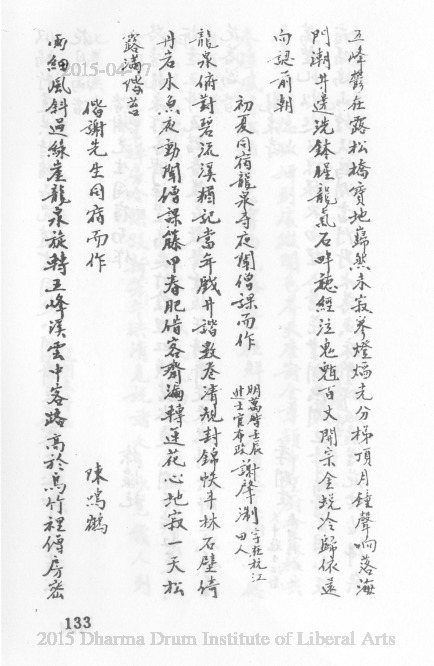 五峰鬱在露松橋寶地巋然未寂寥燈熖光分梯頂月鐘聲响落海
門潮井邊洗鉢腥龍氣石畔施經泣鬼魈百丈開宗金蛻冷歸依遠
向認前朝
初夏同宿龍泉寺夜聞僧課而作 明萬曆壬辰進士官布政 謝肇淛 字在杭江田人
龍泉俯對碧流溪猶記當年戲井諧數卷清規封錦帙千林石壁倚
丹崖木魚夜動聞僧課籐甲春肥借客齋漏轉蓮花心地寂一天松
露滿堦苔
偕謝先生同宿而作 陳鳴鶴
雨細風斜過綠崖龍泉旋轉五峰溪雲中客路高於鳥竹裡傳房密
133
2015-04-07
2015 Dharma Drum Institute of Liberal Arts